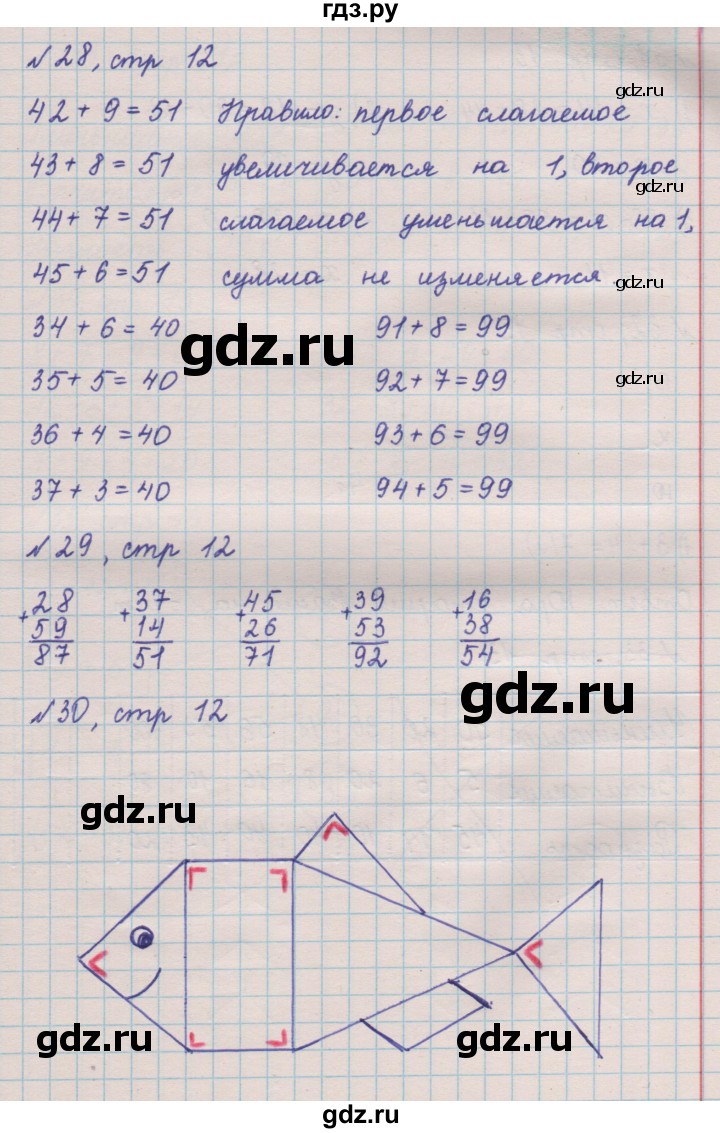 гдз.ру
№28, стр 12
gdz.ru
42 + 9 = 51 Правило: первое слагаемое
43 + 8 = 51 увеличивается на 1, второе
gdz.ru
44 + 7 = 51 слагаемое уменьшается на 1,
45 + 6 = 51 сумма не изменяется.
gdz.ru
34 + 6 = 40 91 + 8 = 99
gdz.ru
35 + 5 = 40 92 + 7 = 99
gdz.ru
36 + 4 = 40 93 + 6 = 99
37 + 3 = 40 94 + 5 = 99
№29, стр 12
+28 +37 +45 +39 +16
59 14 26 53 38
87 51 71 92 54
gdz.ru
№30, стр 12
gdz.ru
gdz.ru
gdz.ru
gdz.ru